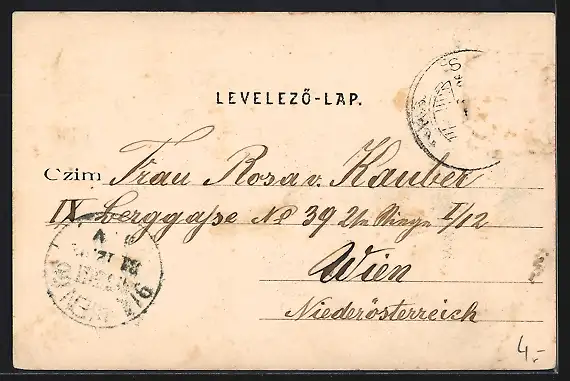 LEVELEZŐ-LAP.
Czim Frau Rosa v. Kauber
IX Berggaße No 39 2/te Stiege I/12
Wien
Niederösterreich
4.-